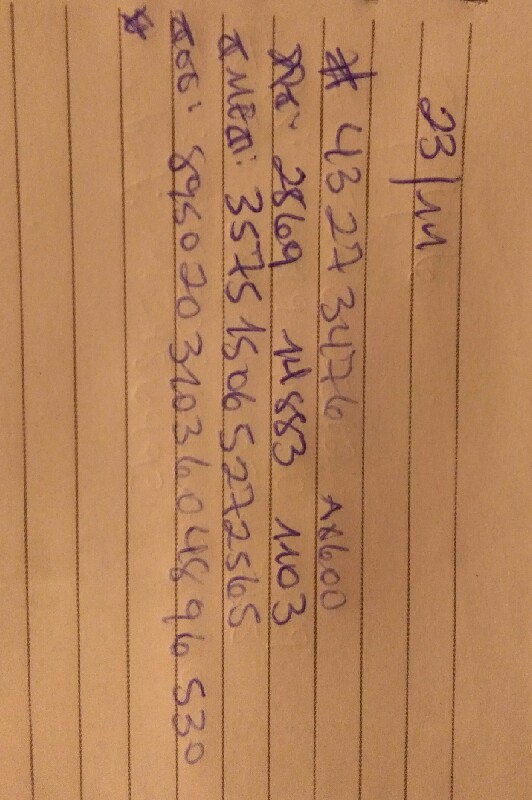 23/11
# 43273476 AX600
2869 14883 1103
357515065272565
8950203103604896530